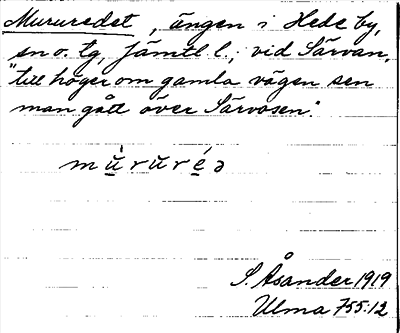 Mururedet, ängen i Hede by,
sn o. tg, Jämtl l.; vid Särvan,
"till höger om gamla vägen sen
man gått över Särvåsen".
mu̇̀rŭréə
S. Åsander 1919
Ulma 755:12